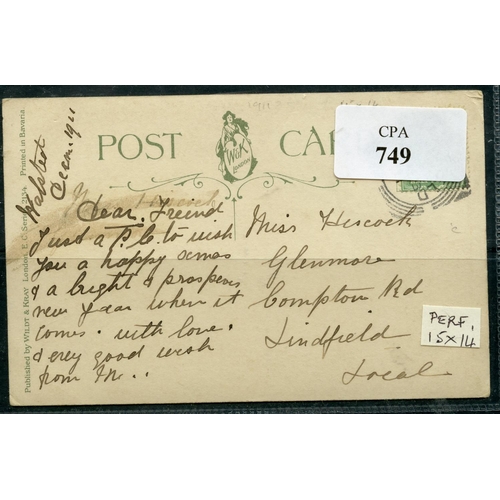 Decem. 1911
POST CAR
W&K
LONDON
CPA
749
Dear Friend
Just a P.C. to wish
you a happy xmas
& a bright & prosperous
new year when it
comes. with love.
& every good wish
from
Miss Hiscock
Glenmore
Compton Rd
Lindfield
Local
PERF.
15x14
15x14
Published by WILDT & KRAY London, E.C. Series Printed in Bavaria.